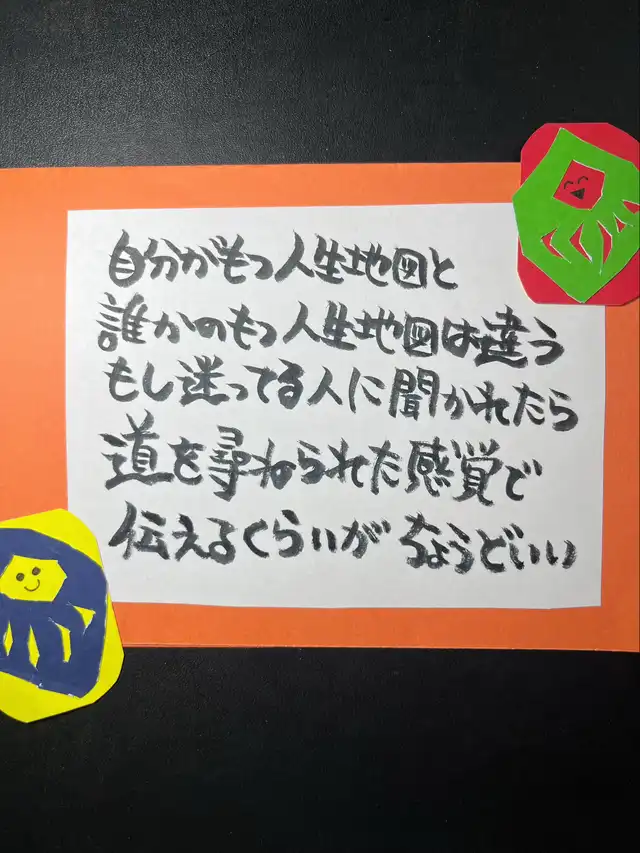 自分がもつ人生地図と
誰かのもつ人生地図は違う
もし迷ってる人に聞かれたら
道を尋ねられた感覚で
伝えるくらいが ちょうどいい